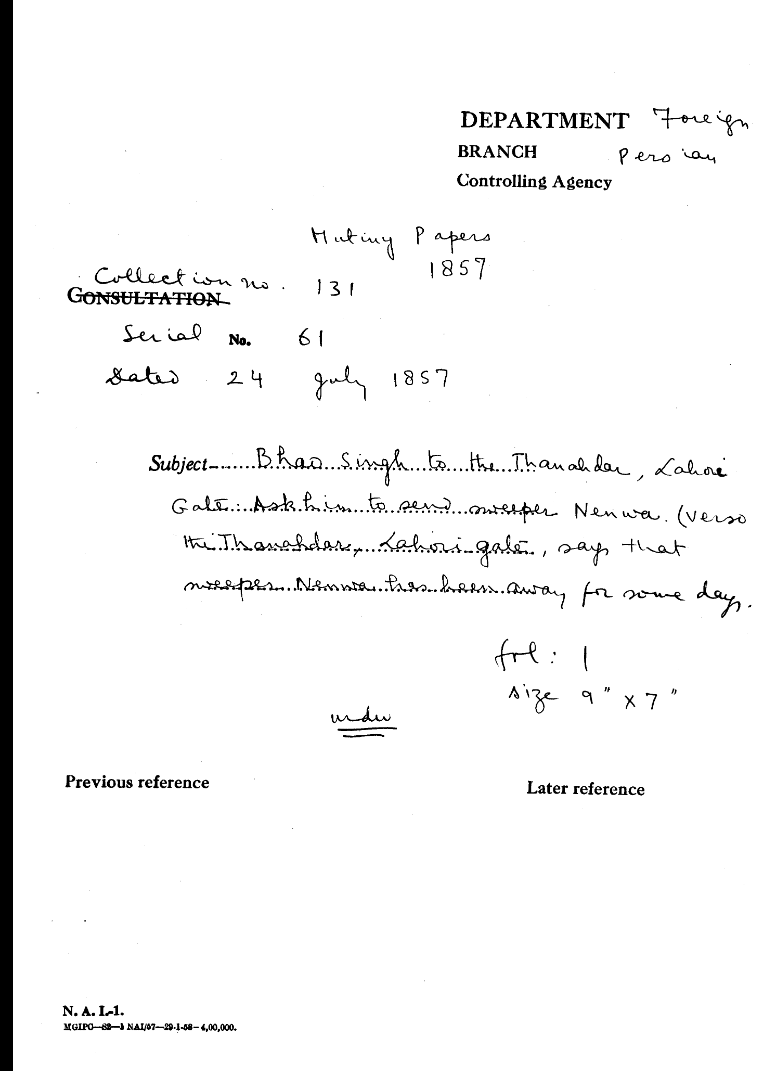 DEPARTMENT Foreign
BRANCH Persian
Controlling Agency
Mutiny Papers
1857
Collection no. 131
CONSULTATION
Serial No. 61
Dated 24 July 1857
Subject- Bhao Singh to the Thanahdar, Lahori
Gate: Ask him to send sweeper Nenwa. (Verso
the Thanahdar, Lahori gate, says that
sweeper Nenwa has been away for some days.
fol: 1
size 9" x 7"
urdu
Previous reference
Later reference
N. A. I.-1.
MGIPC—S2—1 NAI/57—29-1-58—4,00,000.